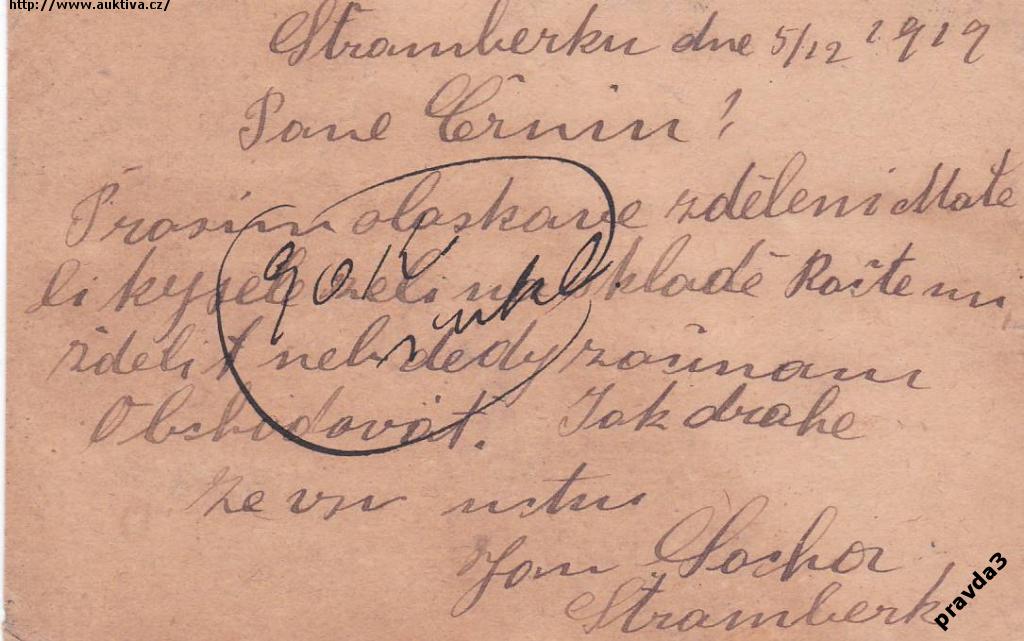 http://www.auktiva.cz/
Štramberku dne 5/12 1919
Pane Černin!
Prosím o laskave zděleni Mate
li kysele zeli na skladě Račte mi
zdělit neb tedy začinam
Obchodovat. Jak drahe
Ze vsi uctu
Jan Sochor
Štramberk
pravda3